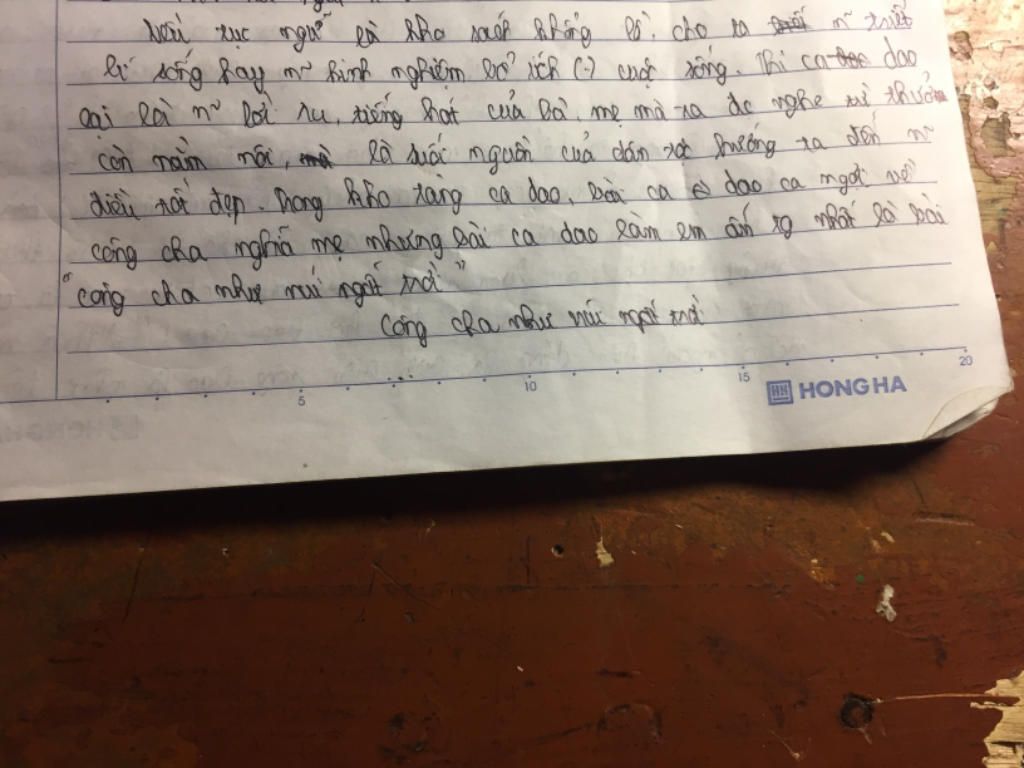 Nếu tục ngữ là kho sách khổng lồ, cho ta nh~ triết
lí sống hay nh~ kinh nghiệm bổ ích (-) cuộc sống. Thì ca dao
lại là n~ lời ru, tiếng hát của bà, mẹ mà ta đc nghe từ thưở
còn nằm nôi, là suối nguồn của dân tộc hướng ta đến n~
điều tốt đẹp. Trong kho tàng ca dao, bài ca dao ca ngợi về
công cha nghĩa mẹ nhưng bài ca dao làm em ấn tg nhất là bài
"công cha như núi ngất trời"
Công cha như núi ngất trời
5 10 15 20
HH HONG HA